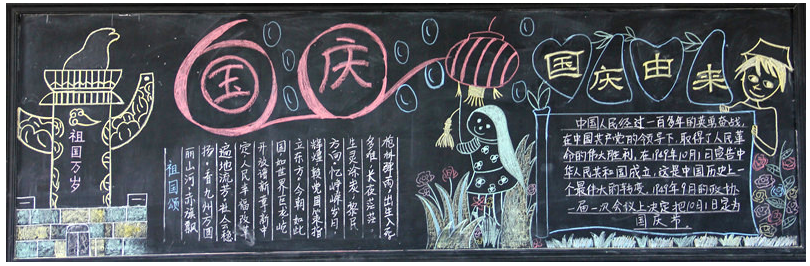 国庆
国庆由来
祖国万岁
祖国颂
丽山河,赤旗飘
扬.看九州方圆
遍地流芳.社会稳
定人民幸福改革
开放谱新章.新中
国如世界巨龙屹
立东方.今朝如此
辉煌赖党国策指
方向.忆峥嵘岁月
生灵涂炭.黎民
多难.长夜茫茫.
枪林弹雨,出生入死
中国人民经过一百多年的英勇奋战,
在中国共产党的领导下,取得了人民革
命的伟大胜利,在1949年10月1日宣告中
华人民共和国成立,这是中国历史上
一个最伟大的转变,1949年9月的政协
一届一次会议上决定把10月1日定为
国庆节。